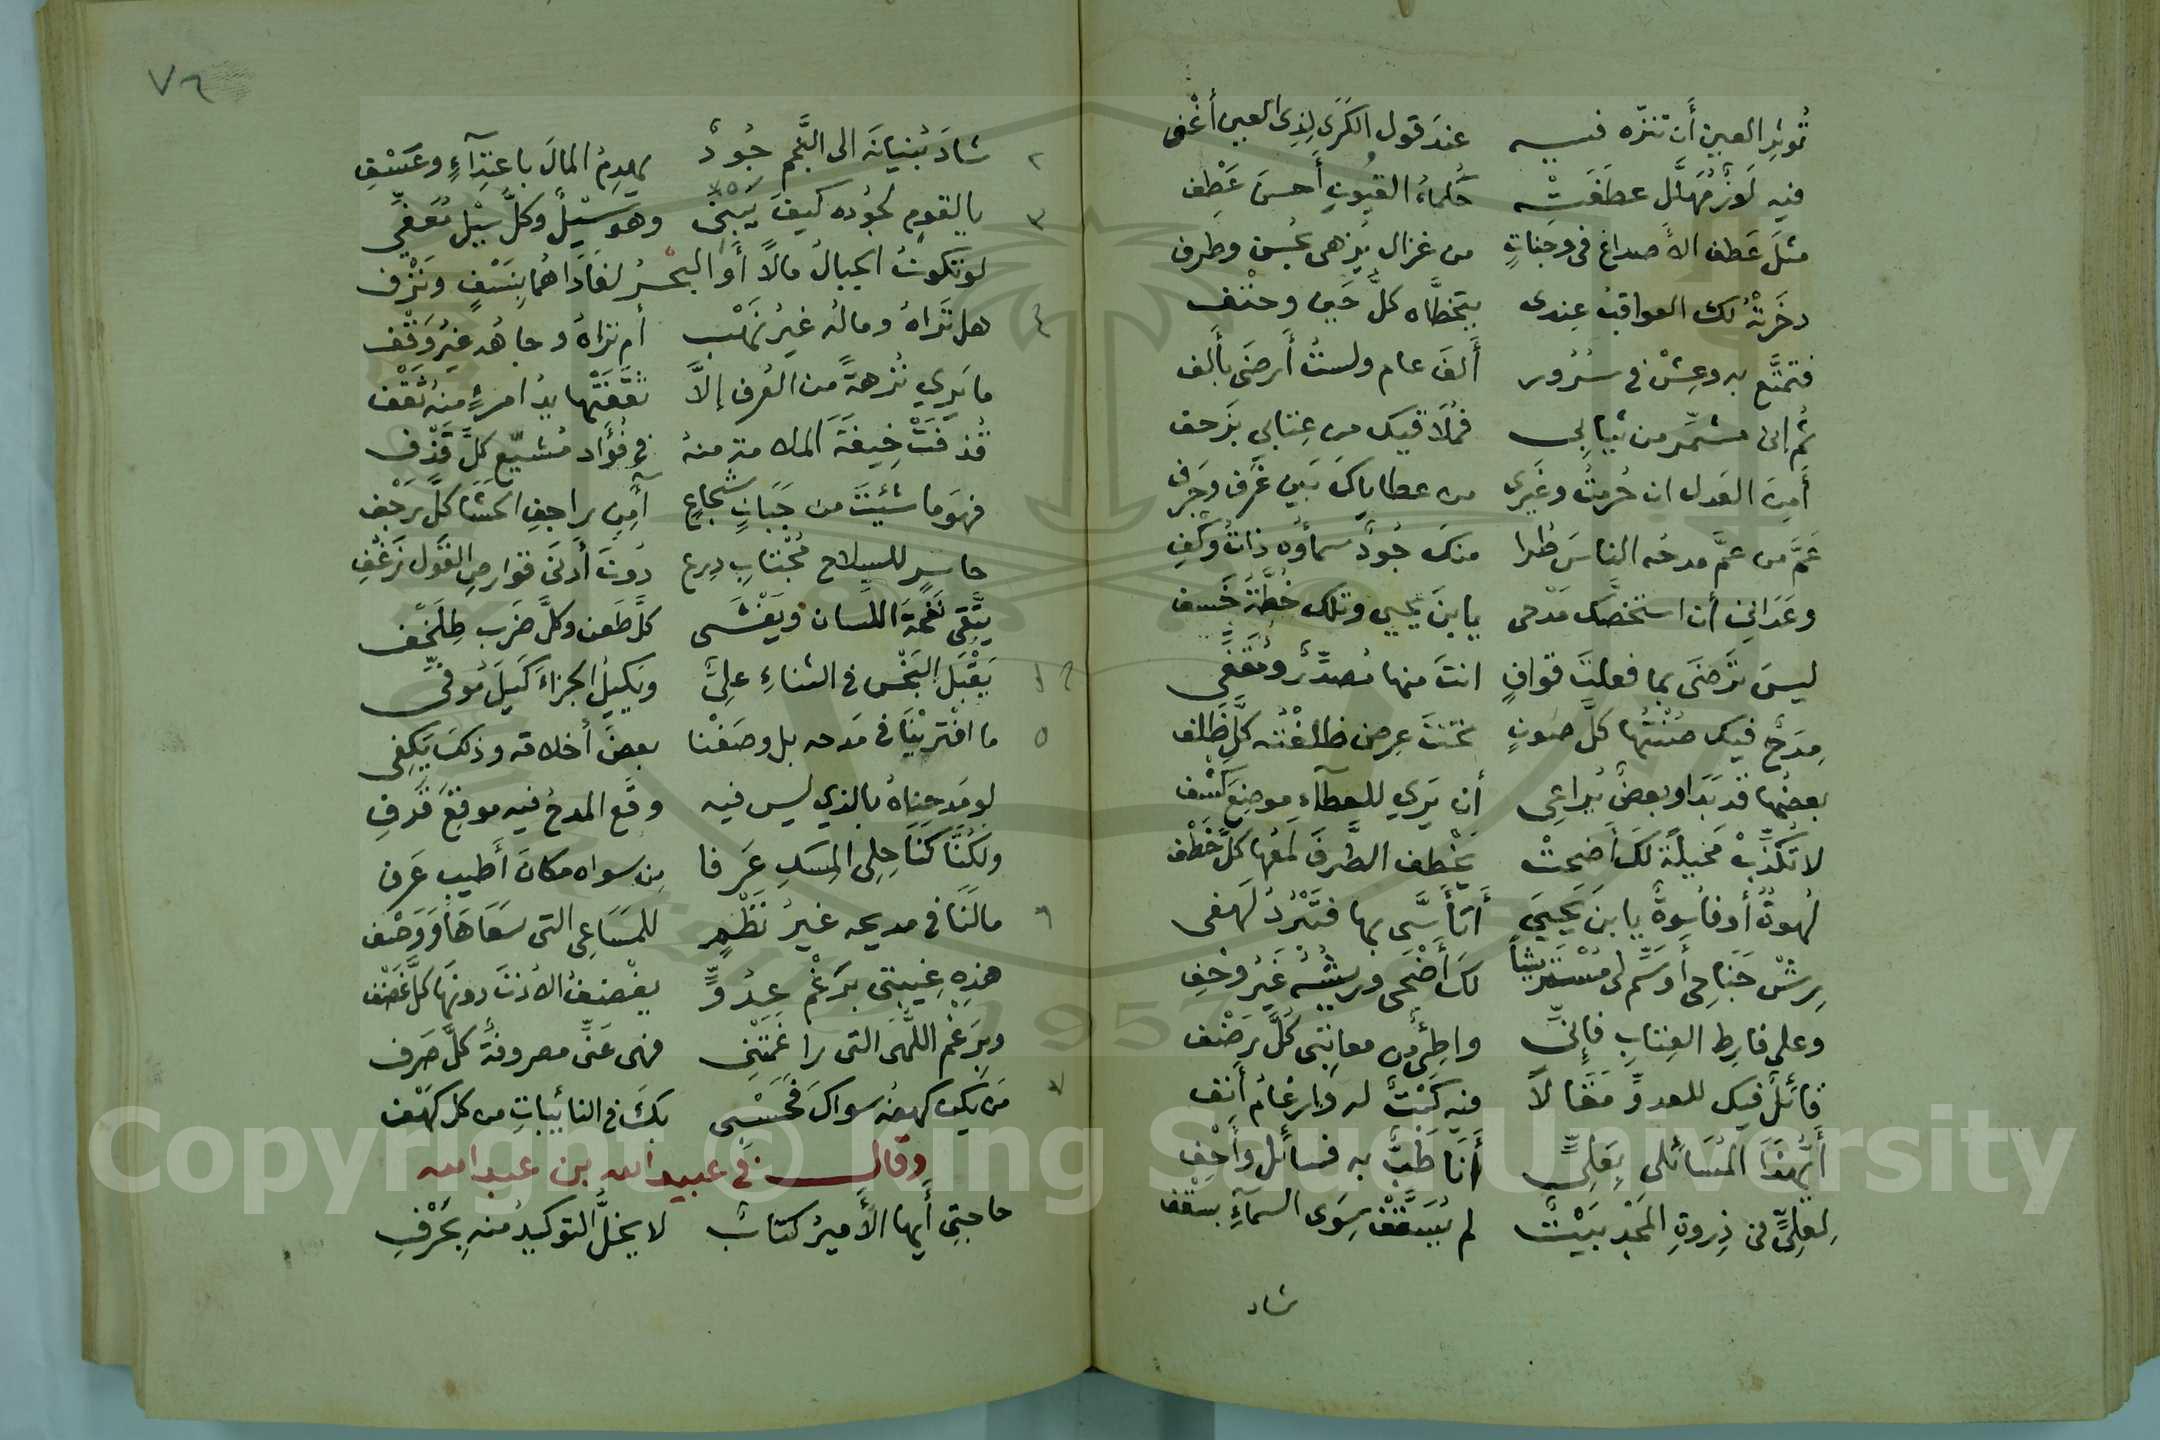 تُوثِر العين أن تنزّه فيه عندَ قول الكَرَى لِذِى العين أغْفِ
فيه لَوزٌ مُهلَّل عطفَتْه حُلماءُ القُيُونِ أحسنَ عَطفِ
مثلَ عَطف الأصداغ فى وجَناتٍ من غزال يُزهى بحُسن وظرف
دخَرتْهُ لك العواقبُ عِندى يتخطَّاه كلُّ حَيْن وحتْف
فتمتَّع به وعِشْ في سُرُور ألفَ عام ولستُ أرضَى بألف
ثم إنى مشمّر من ثيابى فمُلاقيك من عِتابي بزَحف
أمِنَ العَدل ان حُرمتُ وغيرى من عطاياكَ بَين غَرَف وجَرفِ
عَمَّ من عمَّ مدحُه الناسَ طُرا منك جُودٌ سماؤه ذاتُ وكْفِ
وعَدَانِى أن استخصّك مَدْحى يا بنَ يحيى وتلك خُطَّةُ خَسف
ليسَ تَرضَى بما فعلتَ قوافٍ انتَ منها مُصدَّرٌ ومُقَفَّى
مِدَحٌ فيك صُنْتُها كلَّ صَونٍ تحتَ عِرض ظلفْتُه كلَّ ظَلف
بعضُها قد بَدَا وبعضٌ يُراعِى أن يَرى للعطآءِ موضِعَ كَشْف
لا تكذِّبْ مَخيلةً لكَ أضحتْ يَخْطف الطَّرفَ لمعُها كلَّ خَطْف
لُهوةٌ أو فأُسوةٌ يا بنَ يَحيَى أتَأسَّى بها فتَبْرُدُ لَهفى
رِشْ جَناحِى أوسَمِّ لى مُسْتَريشاً لكَ أَضْحَى وريشُه غَيرُ وَحْفِ
وعلى فارِط العِتابِ فإنّى واطئٌ من معاتبى كُلَّ رَضْف
قائلٌ فيك للعدوِّ مَقَالاً فيه كَبْتٌ له وإرغامُ أنف
أيُّهذَا المُسَائلى بِعَلِىٍّ أنَا طَبٌّ به فسائل وأحْفِ
لِعَلِىٍّ فى ذِروةِ المَجْدِ بَيْتٌ لم يُسَقَّفْ سِوَى السمآءِ بسقْف
شاد
٧٦
شادَ بُنيانَه الى النَّجم جُودٌ يهدِمُ المالَ باعتِدآءٍ وعَسْفِ
يالقومٍ لجُوده كيفَ يَبْنِى وهو سَيْلٌ وكلُّ سَيْل مُعَفِّى
لو تكونُ الجبالُ مالاً أو البحْرُ لغَادَاهُما بِنَسْفٍ ونَزْف
هل تَراهُ ومالُه غيرُ نَهْب أم تراهُ وجاهُه غيرُ وَقْف
ما يَرى نُزهةً من العُرف إلاَّ ثقَّفَتْها يدُ امرئٍ منهُ ثَقْف
قُذفتْ خِيفَةَ الملامة منهُ في فُؤَاد مُشيّعٍ كلَّ قَذْف
فهو ما شئتَ من جَبَانٍ شجاعٍ آمِنٍ راجفِ الحَشَا كلَّ رَجْف
حاسرٍ للسِلاح مُجْتابِ دِرع دُونَ أدنَى قوارصِ القَول زَغْفِ
يتَّقى نَفْحةَ اللسان ويَغْشَى كلَّ طَعن وكلَّ ضَرب طِلَخْف
يَقْبَلُ البَخْس فى الثناءِ علىَّ ويَكيلُ الجزاءَ كَيلَ مُوَفِّى
ما افتريْنَا فى مَدحه بل وصَفْنا بعضَ أخلاقه وذلكَ يَكفِى
لو مَدحناهُ بالذي ليس فيه وقَع المدحُ فيه موقِعَ قَرفِ
ولكُنَّا كنَاحِلِى المِسكِ عَرفا مِن سواه مكانَ أطيبِ عَرف
مالَنَا في مديحه غيرُ نَظْمٍ للمَسَاعِى التى سَعَاهَا ووَصْف
هذِهِ غِيبتى بَرغْم عدُوٍّ يغضفُ الأذنَ دونَها كلَّ غَضْف
وبِرَغْم اللُّهَى التى راغَمَتْنى فهى عَنّى مصروفةٌ كلَّ صَرف
مَن يكن كهفُه سواكَ فحَسْبى بكَ فى النائباتِ من كل كهْف
وقال فى عبيد الله بن عبدالله
حاجتى أيها الأميرُ كتابٌ لا يخلُّ التوكيدُ منه بِحَرْفِ